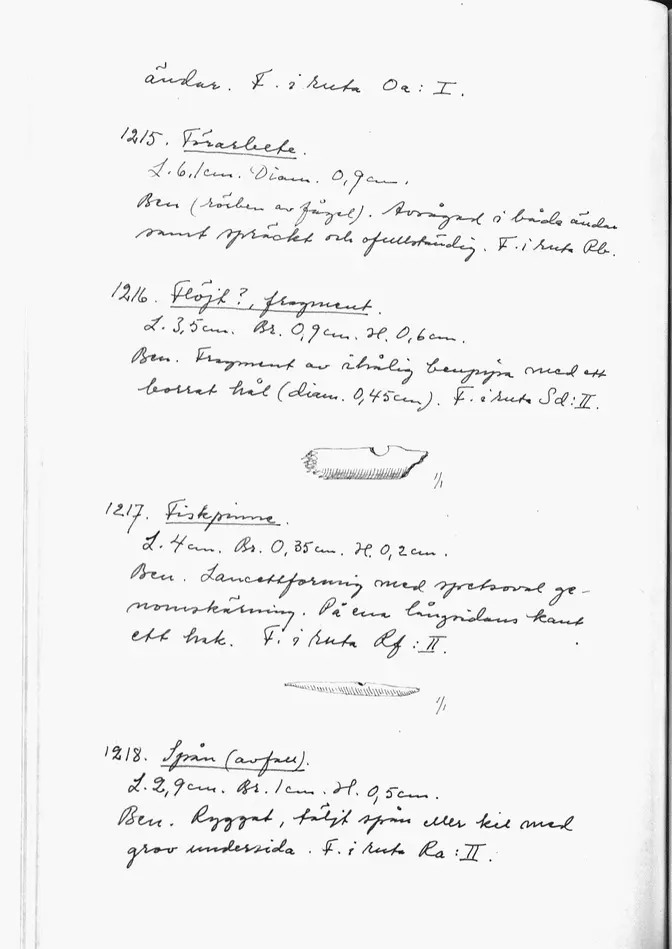 ändar. F. i ruta Oa: I.
1215. Förarbete.
L. 6,1 cm. Diam. 0,9 cm.
Ben (rörben av fågel). Avsågad i båda ändar
samt spräckt och ofullständig. F. i ruta Pb.
1216. Flöjt?, fragment.
L. 3,5 cm. Br. 0,9 cm. H. 0,6 cm.
Ben. Fragment av ihålig benpipa med ett
borrat hål (diam. 0,45 cm). F. i ruta Sd: II.
1/1
1217. Fiskpinne.
L. 4 cm. Br. 0,35 cm. H. 0,2 cm.
Ben. Lancettformig med spetsoval ge-
nomskärning. På ena långsidans kant
ett hak. F. i ruta Rf: II.
1/1
1218. Spån (avfall).
L. 2,9 cm. Br. 1 cm. H. 0,5 cm.
Ben. Ryggat, täljt spån eller kil med
grov undersida. F. i ruta Ra: II.